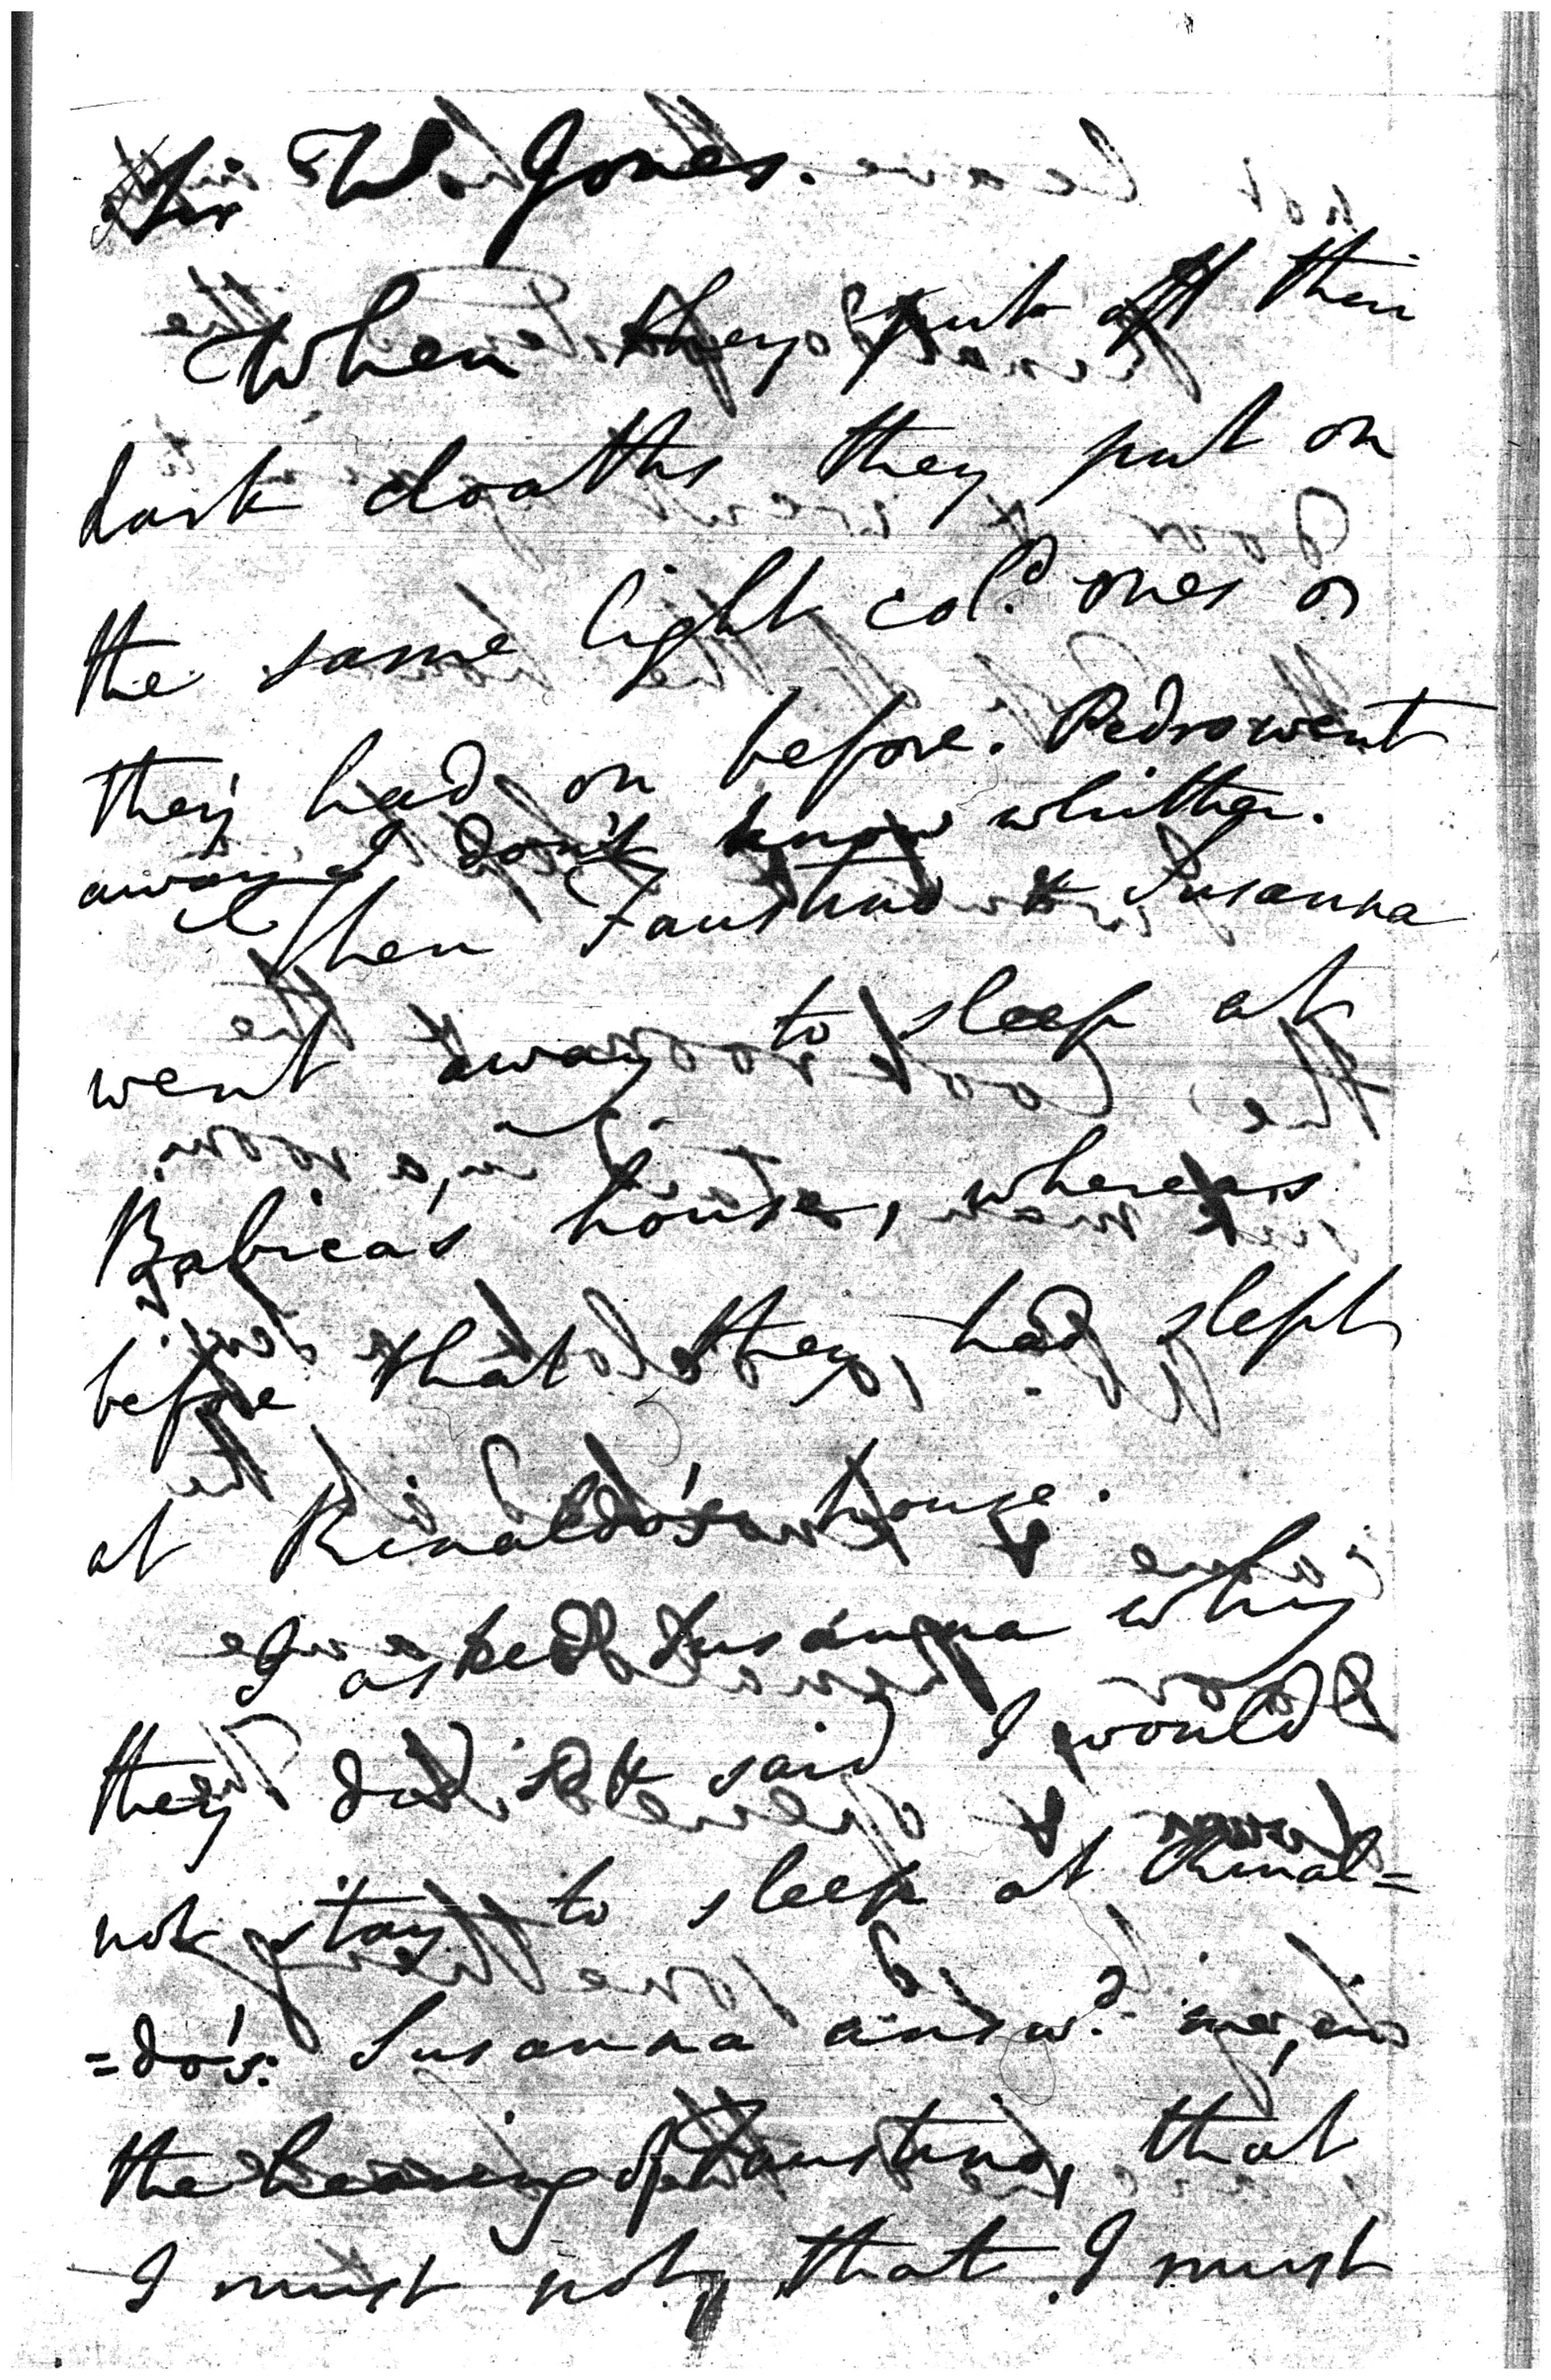 Sir W. Jones.
When they put off their
dark cloaths they put on
the same light col.d ones as
they had on before. Pedro went
away I don't know whither.
Then Faustino & Susanna
went away to sleep at
Babica's house, whereas
before that they had slept
at Rinaldo's house.
I asked Susanna why
they did it & said I would
not stay to sleep at Rinal=
=do's: Susanna answ.d me, in
the hearing of Faustino, that
I must not, that I must